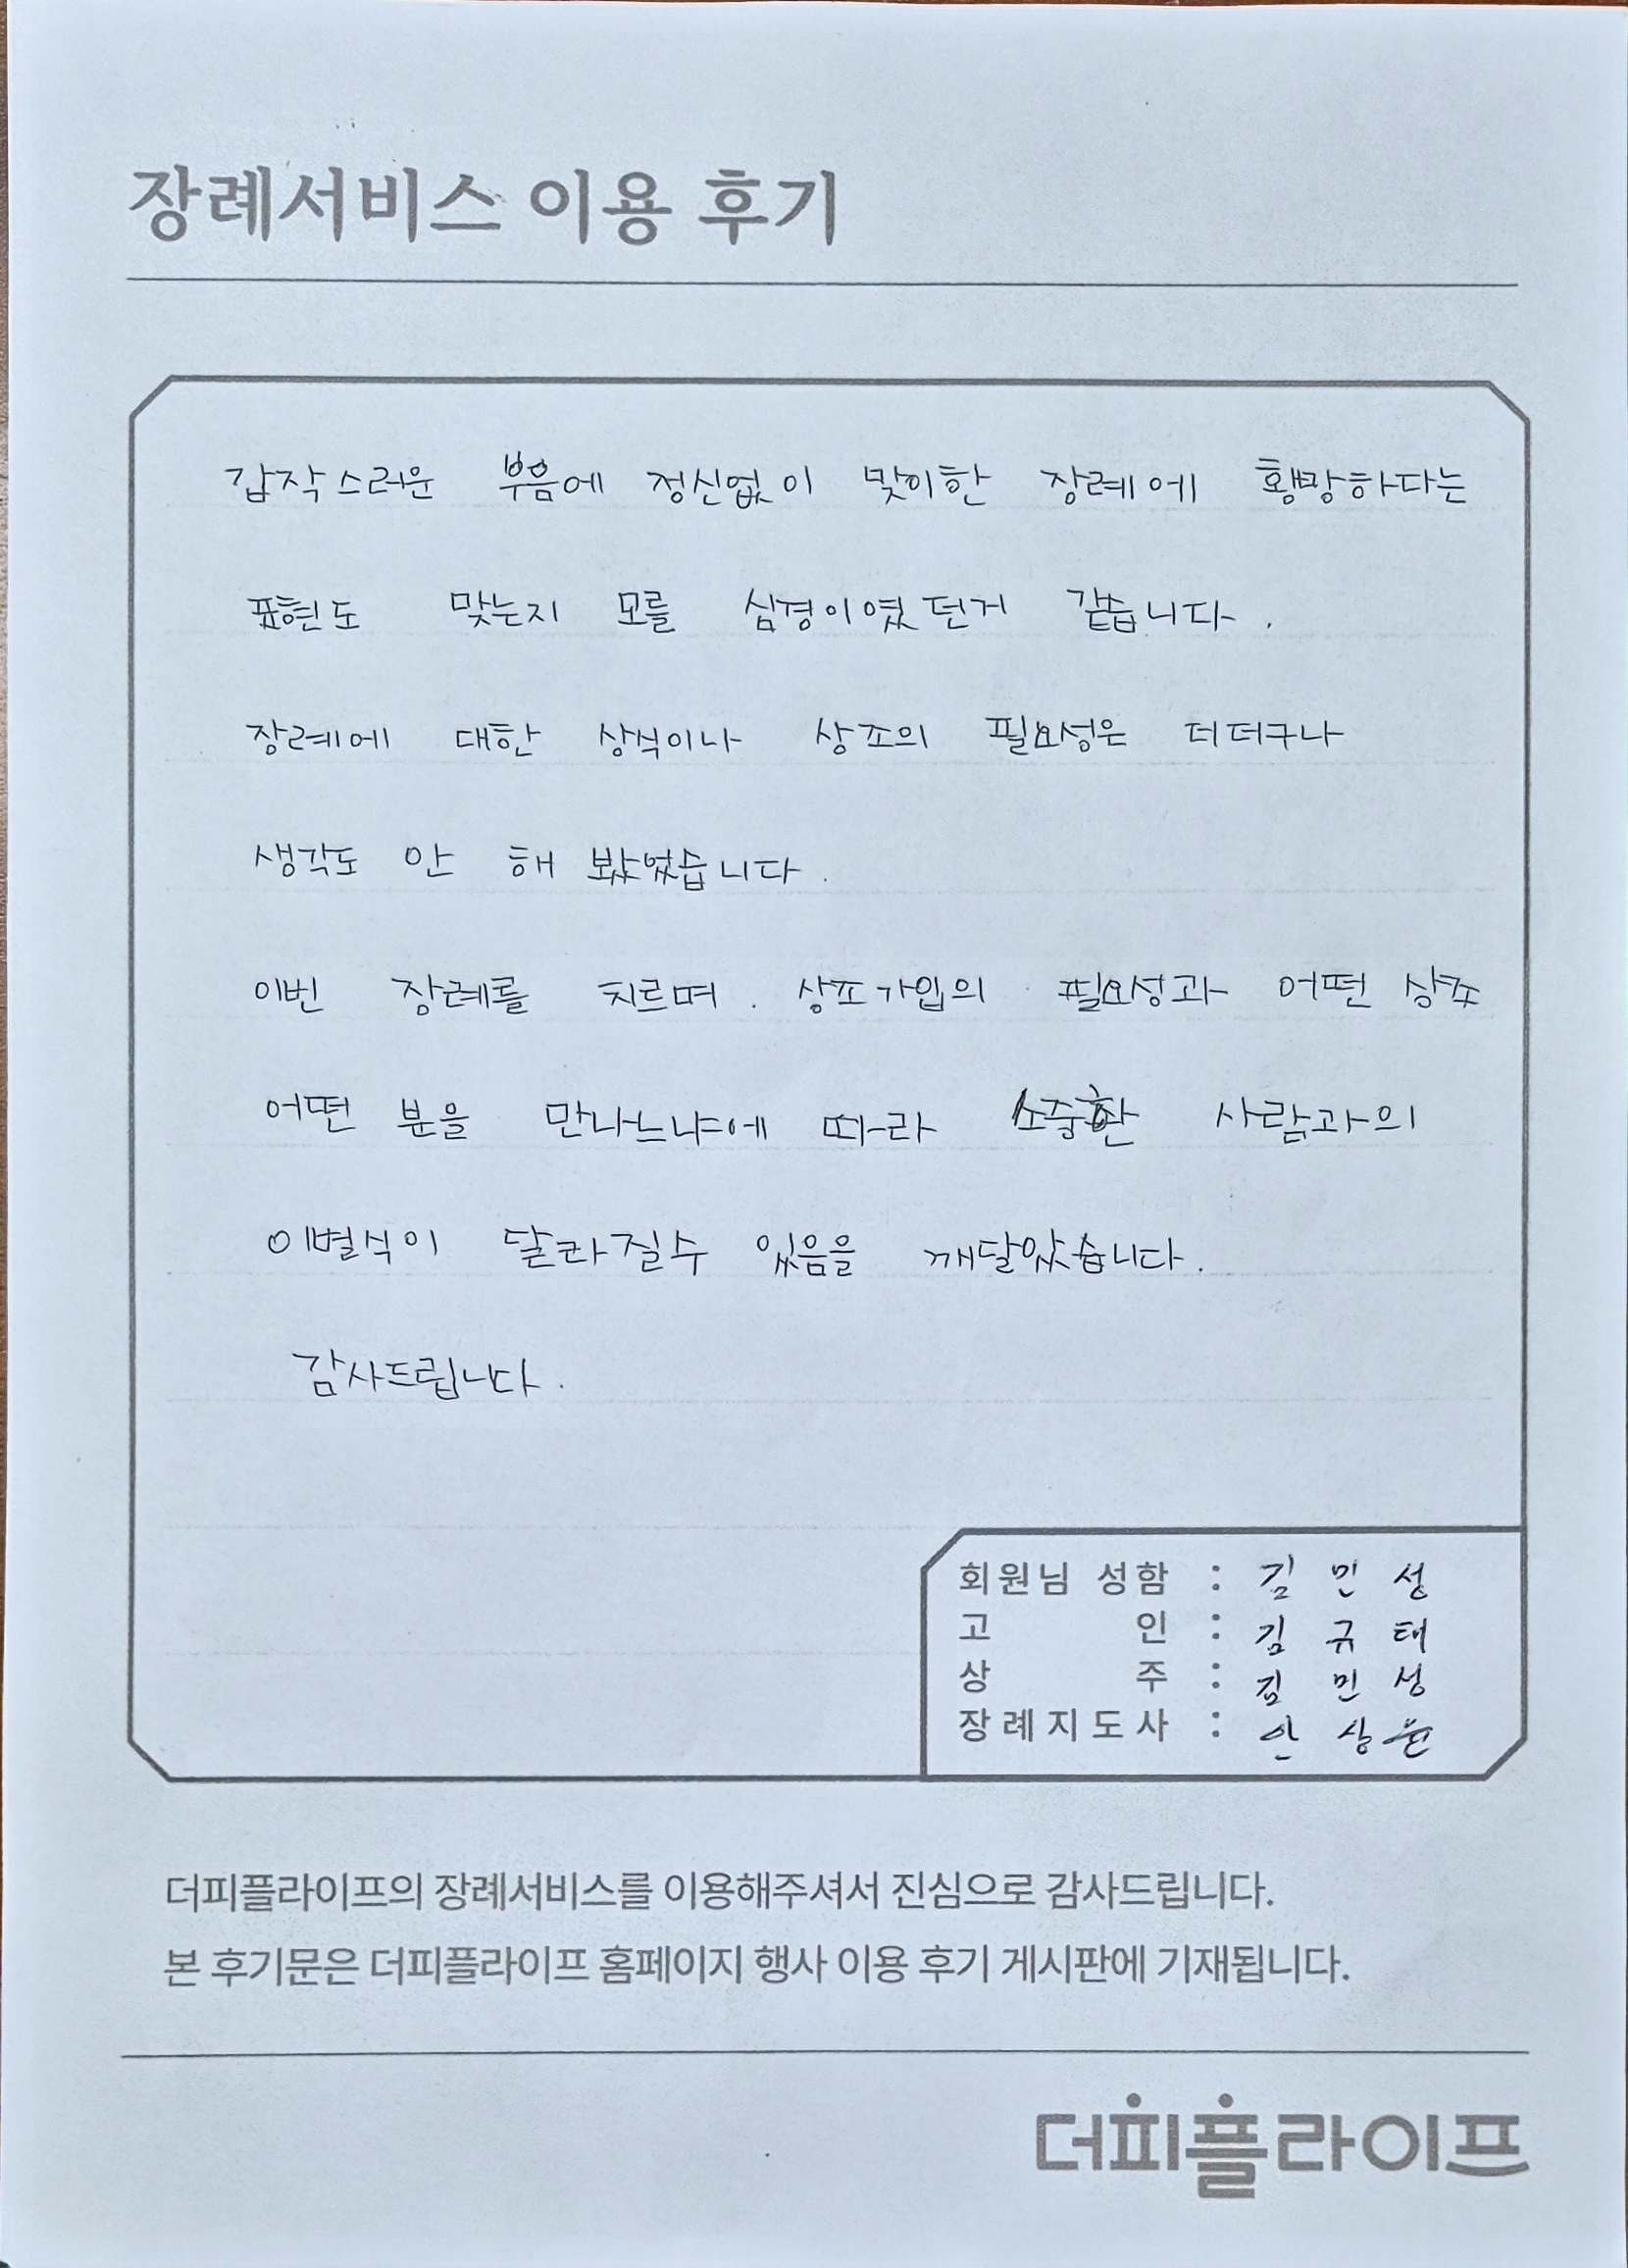 장례서비스 이용 후기
갑작스러운 부음에 정신없이 맞이한 장례에 황망하다는
표현도 맞는지 모를 심경이였던거 같습니다.
장례에 대한 상식이나 상조의 필요성은 더더구나
생각도 안 해 봤었습니다.
이번 장례를 치르며. 상조가입의 필요성과 어떤 상조
어떤 분을 만나느냐에 따라 소중한 사람과의
이별식이 달라질수 있음을 깨달았습니다.
감사드립니다.
회원님 성함 : 김 민 성
고 인 : 김 규 태
상 주 : 김 민 성
장례지도사 : 안 상
더피플라이프의 장례서비스를 이용해주셔서 진심으로 감사드립니다.
본 후기문은 더피플라이프 홈페이지 행사 이용 후기 게시판에 기재됩니다.
더피플라이프